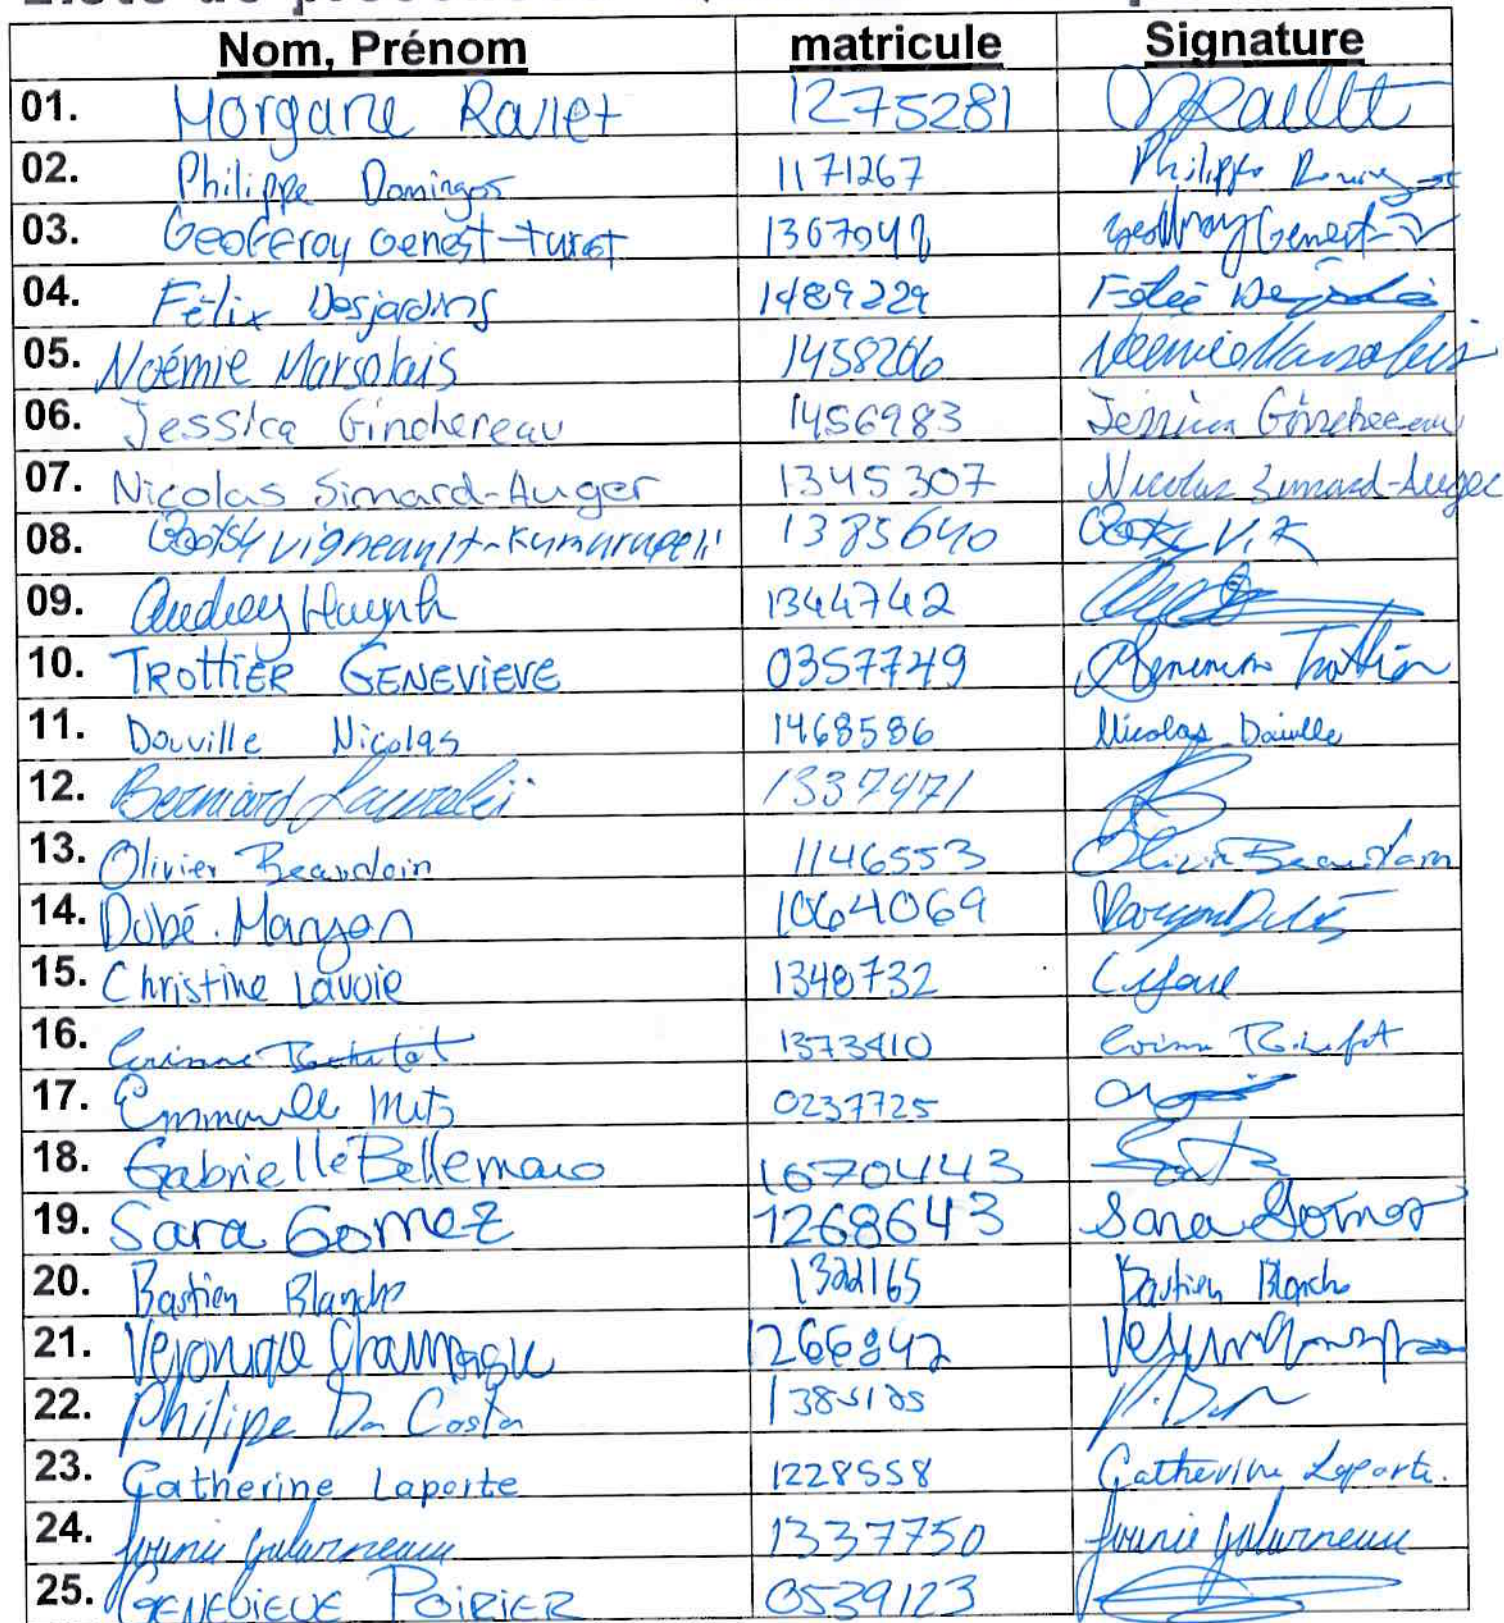 Nom, Prénom matricule Signature
01. Morgane Rallet 1275281
02. Philippe Domingos 1171267 Philippe
03. Geoffroy Genest-Turcot Geoffroy Genest-T
04. Félix Desjardins 1489229 Félix
05. Noémie Marsolais 1458206 Noémie Marsolais
06. Jessica Ginchereau 1456983 Jessica Ginchereau
07. Nicolas Simard-Auger 1345307 Nicolas Simard-Auger
08. Vigneault-Kumarapeli 1385640 V.K
09. Audrey Huynh 1344742
10. TROTTIER GENEVIEVE 0357749 Trottier
11. Douville Nicolas 1468586 Nicolas Douville
12. Bernard 1337971
13. Olivier Beaudoin 1146553 Olivier Beaudoin
14. Dubé. Manyon 1064069
15. Christine Lavoie 1348732
16. 1373410
17. 0237725
18. Gabrielle Bellemare 1670443
19. Sara Gomez 1268643 Sara Gomez
20. Bastien Blanche 1322165 Bastien Blanche
21. Veronique Champagne 1266842
22. Philipe Da Costa 1385125
23. Catherine Laporte 1228558 Catherine Laporte.
24. Galarneau 1337750 Galarneau
25. GENEVIEVE POIRIER 0539123